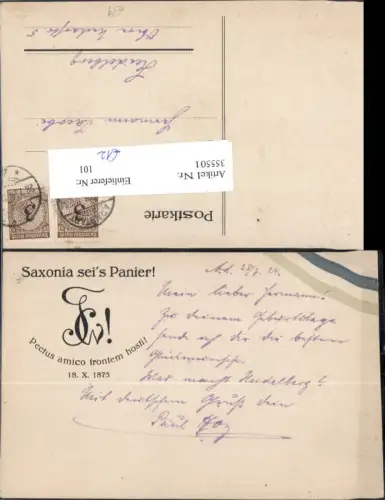 Postkarte
Artikel Nr: 355501
Einlieferer Nr: 101
Heidelberg
3
3
Saxonia sei's Panier!
Pectus amico frontem hosti!
18. X. 1875
Mein lieber Hermann!
Zu deinem Geburtstage
sende ich dir die besten
Glückwünsche.
Was macht Heidelberg?
Mit deutschem Gruß dein
Paul